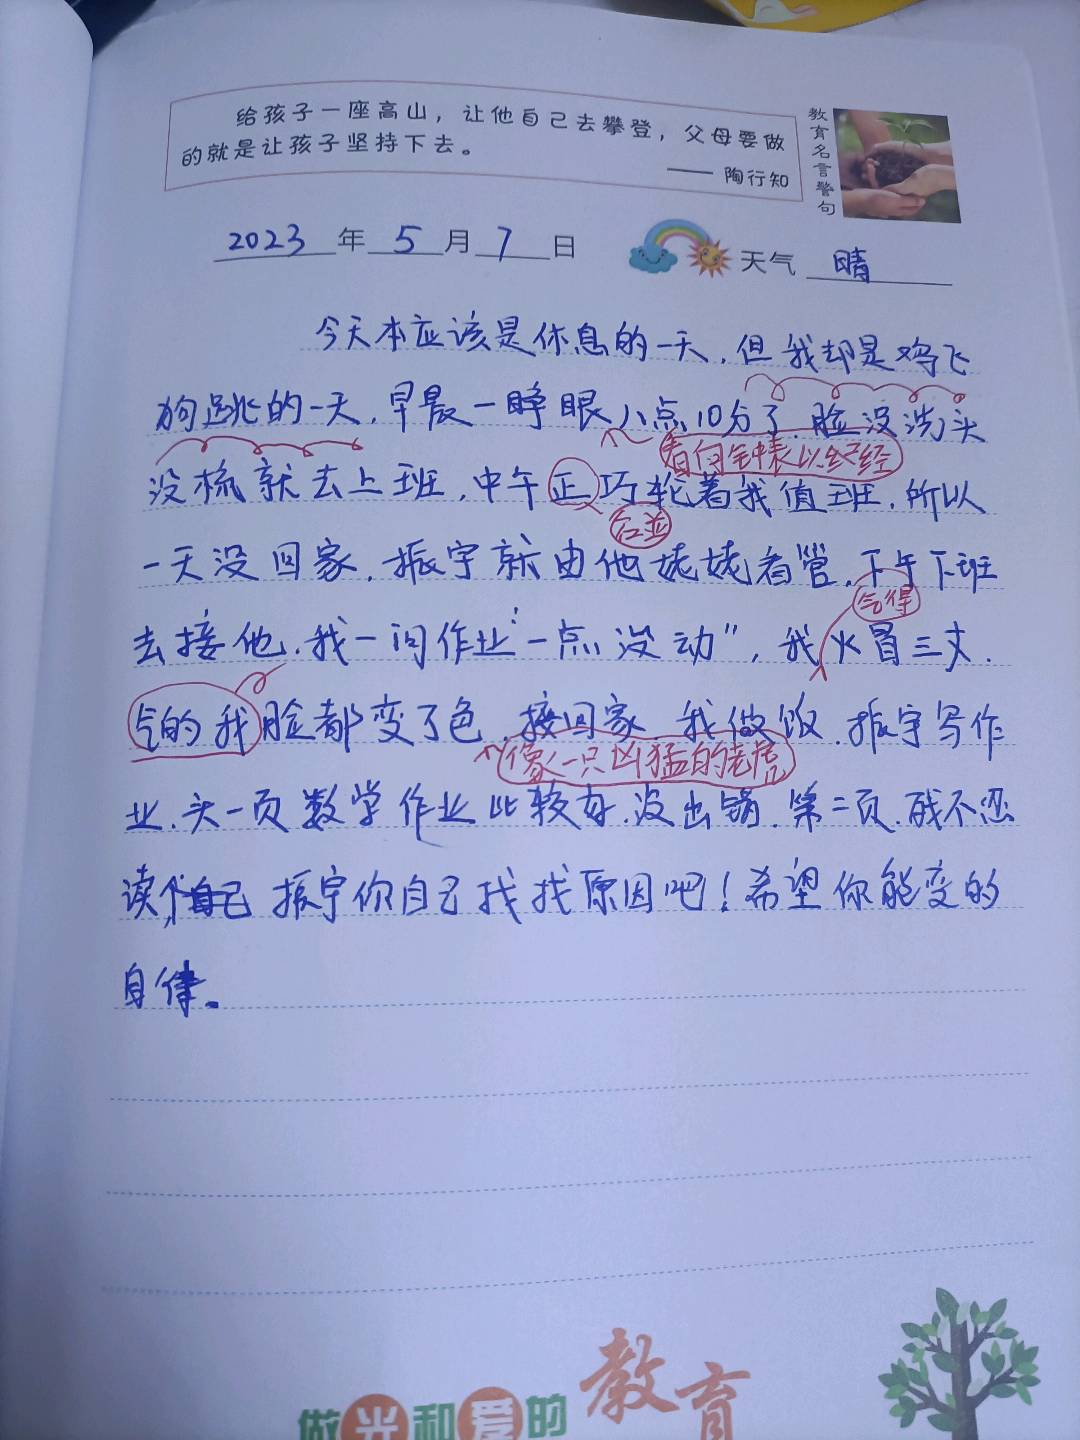 给孩子一座高山，让他自己去攀登，父母要做
的就是让孩子坚持下去。
—— 陶行知
教育名言警句
2023年5月7日 天气 晴
今天本应该是休息的一天，但我却是鸡飞
狗跳的一天，早晨一睁眼八点10分了，脸没洗头
看向钟表已经
没梳就去上班，中午正巧轮着我值班，所以
一天没回家，振宇就由他姥姥看管，下午下班
气得
去接他，我一问作业“一点没动”，我火冒三丈，
气的我脸都变了色，接回家，我做饭，振宇写作
像一只凶猛的老虎
业，头一页数学作业比较好，没出错，第二页，残不忍
读，振宇你自己找找原因吧！希望你能变的
自律。
做光和爱的教育